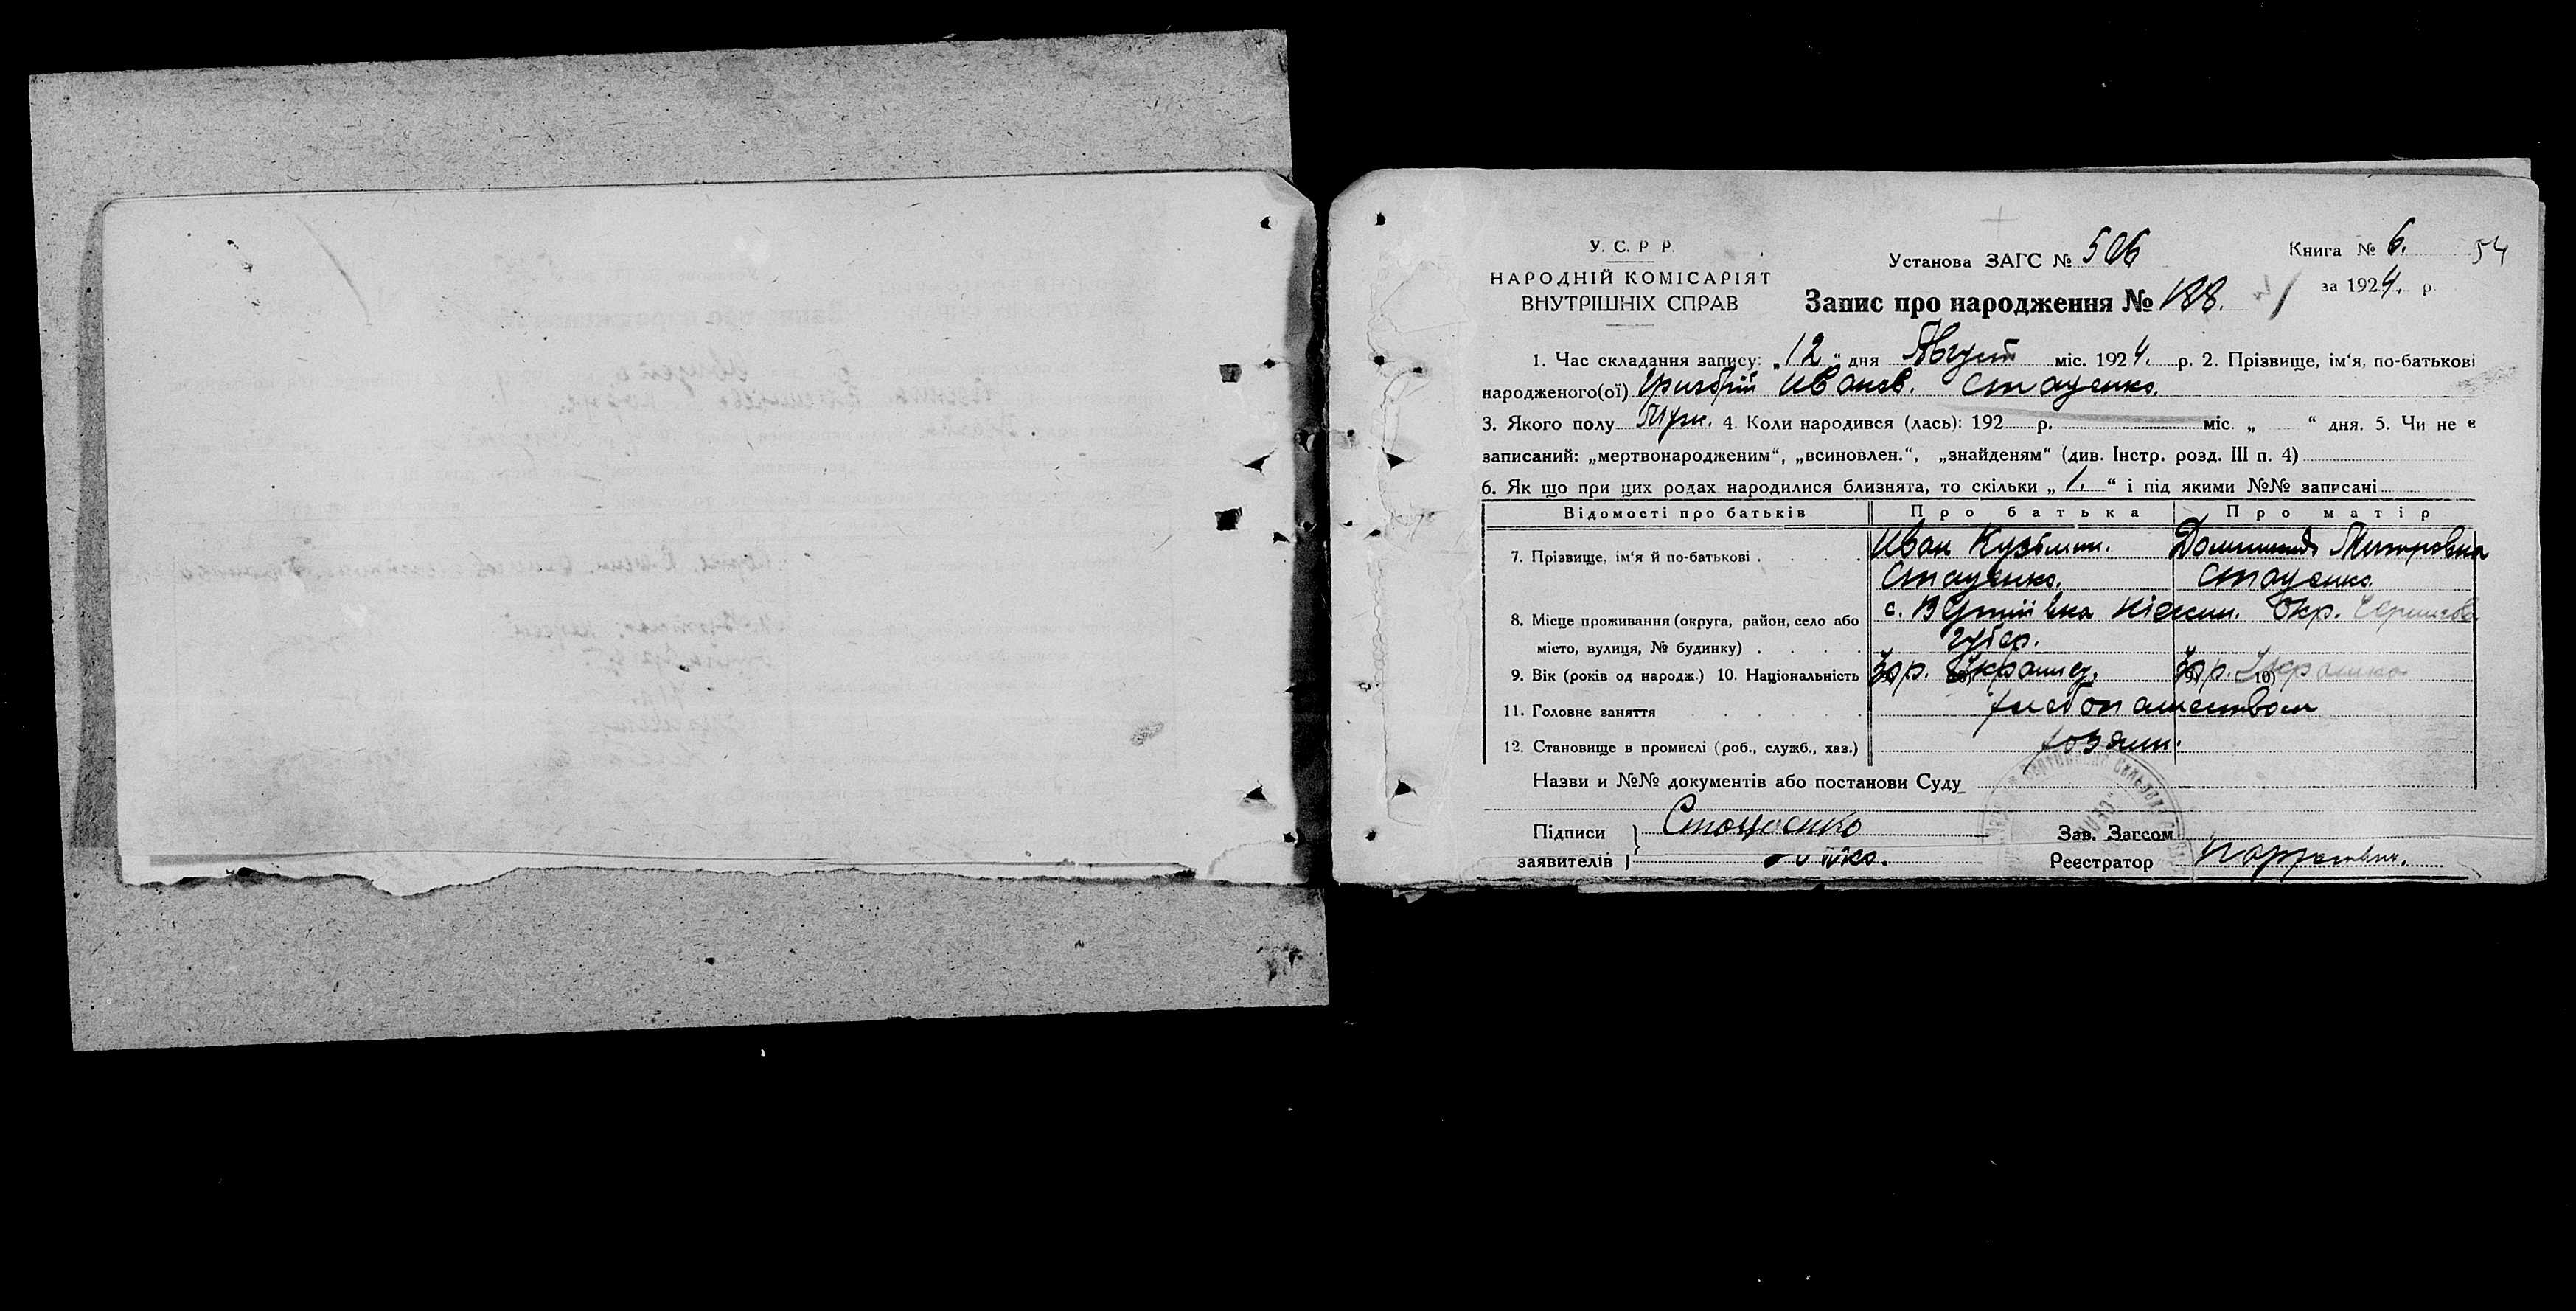 У. С. Р Р.
НАРОДНІЙ КОМІСАРІЯТ
ВНУТРІШНІХ СПРАВ
Установа ЗАГС № 506
Книга № 6. 54
за 1924. р.
Запис про народження № 188.
1. Час складання запису: „12“ дня Август міс. 1924. р. 2. Прізвище, ім‘я, по-батькові
народженого(ої) Григорій Иванов. Стаценко.
3. Якого полу Муж. 4. Коли народився (лась): 192 р. міс. „ “ дня. 5. Чи не є
записаний: „мертвонародженим“, „всиновлен.“, „знайденям“ (див. Інстр. розд. III п. 4)
6. Як що при цих родах народилися близнята, то скільки „1.“ і під якими №№ записані
Відомості про батьків Про батька Про матір
7. Прізвище, ім‘я й по-батькові Иван Кузьмин. Митровна
Стаценко. Стаценко.
8. Місце проживання (округа, район, село або с. Ніжин. Окр.
місто, вулиця, № будинку) губер.
9. Вік (років од народж.) 10. Національність р. Украинец. р. 10)
11. Головне заняття хлебопашеством
12. Становище в промислі (роб., служб., хаз.) хозяин.
Назви и №№ документів або постанови Суду
Підписи Стаценко Зав. Загсом
заявителів Реєстратор